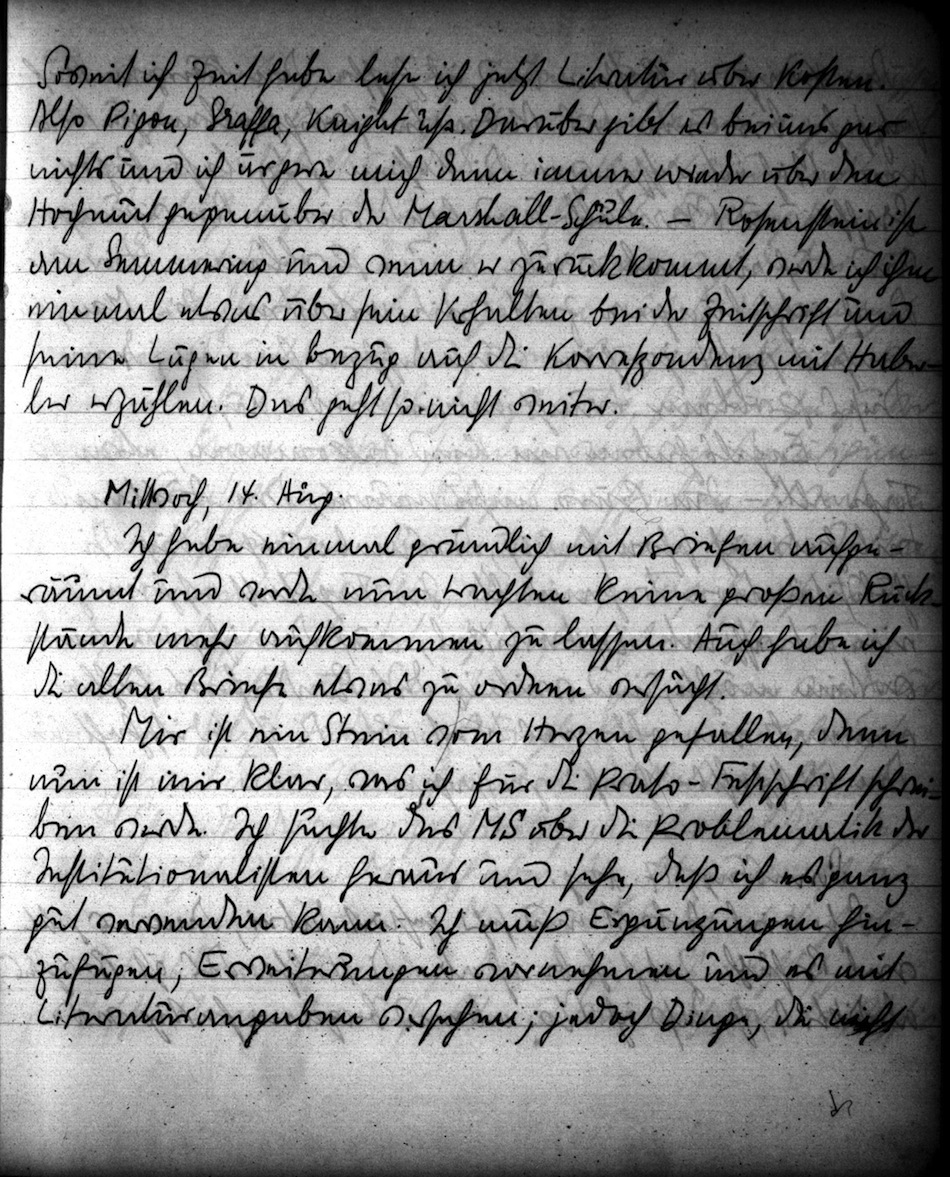 Soweit ich Zeit habe lese ich jetzt Literatur über Kosten.
Also Pigou, Sraffa, Knight usf. Darüber gibt es bei uns gar
nichts und ich ärgere mich dann immer wieder über den
Hochmut gegenüber der Marshall-Schule. – Rosenstein ist
am Semmering und wenn er zurückkommt, werde ich ihm
einmal etwas über sein Verhalten bei der Zeitschrift und
seine Lügen in bezug auf die Korrespondenz mit Haber-
ler erzählen. Das geht so nicht weiter.
Mittwoch, 14. Aug.
Ich habe einmal gründlich mit Briefen aufge-
räumt und werde nun trachten keine großen Rück-
stände mehr aufkommen zu lassen. Auch habe ich
die alten Briefe etwas zu ordnen versucht.
Mir ist ein Stein vom Herzen gefallen, denn
nun ist mir klar, was ich für die Prato-Festschrift schrei-
ben werde. Ich suchte das MS über die Problematik der
Institutionalisten heraus und sehe, daß ich es ganz
gut verwenden kann. Ich muß Ergänzungen hin-
zufügen, Erweiterungen vornehmen und es mit
Literaturangaben versehen; jedoch Dinge, die nicht